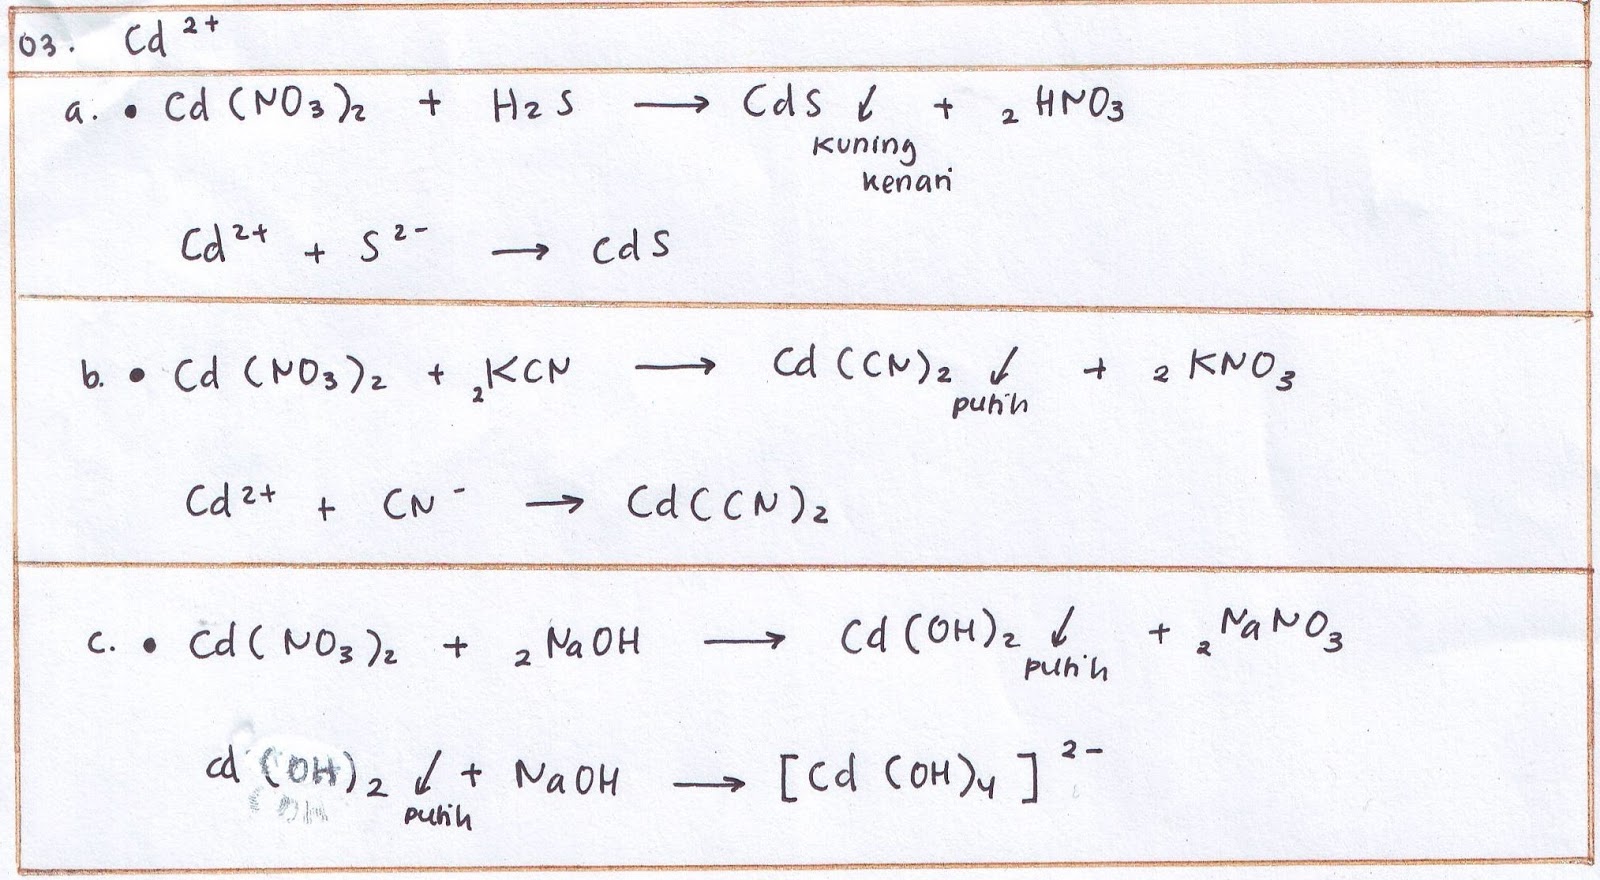 03. Cd ²⁺
a. • Cd (NO₃)₂ + H₂S → CdS ↓ + ₂ HNO₃
kuning
kenari
Cd²⁺ + S²⁻ → CdS
b. • Cd (NO₃)₂ + ₂KCN → Cd (CN)₂ ↓ + ₂ KNO₃
putih
Cd²⁺ + CN⁻ → Cd(CN)₂
c. • Cd (NO₃)₂ + ₂ NaOH → Cd (OH)₂ ↓ + ₂ NaNO₃
putih
cd (OH)₂ ↓ + NaOH → [Cd (OH)₄]²⁻
putih